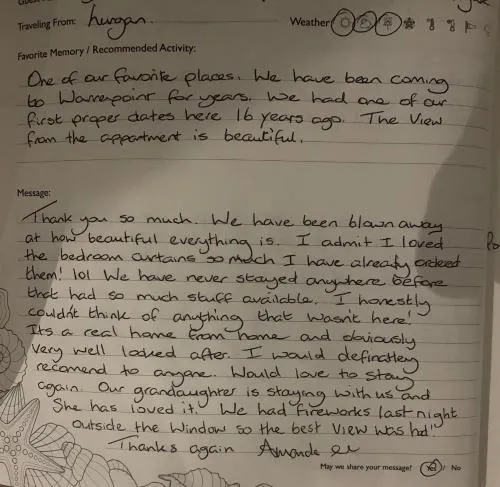 Traveling From: Lurgan.
Weather
Favorite Memory / Recommended Activity:
One of our favorite places. We have been coming
to Warrenpoint for years. We had one of our
first proper dates here 16 years ago. The View
from the appartment is beautiful.
Message:
Thank you so much. We have been blown away
at how beautiful everything is. I admit I loved
the bedroom curtains so much I have already ordered
them! lol We have never stayed anywhere before
that had so much stuff available. I honestly
couldn't think of anything that wasn't here!
Its a real home from home and obviously
very well looked after. I would definatley
recomend to anyone. Would love to stay
again. Our grandaughter is staying with us and
She has loved it. We had fireworks last night
outside the window so the best View was had!
Thanks again Amanda
May we share your message? Yes / No